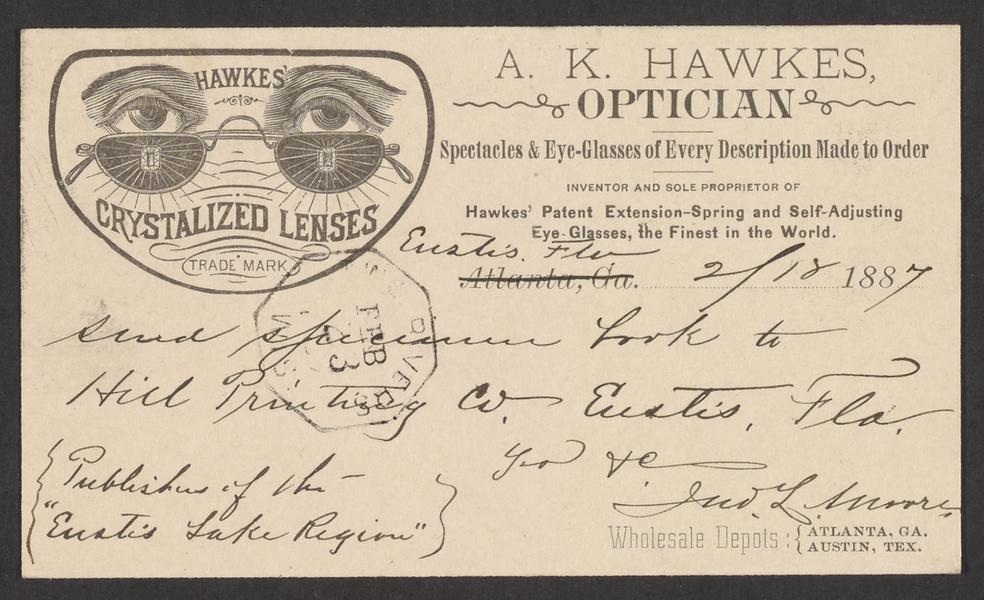 HAWKES'
CRYSTALIZED LENSES
TRADE MARK
A. K. HAWKES,
OPTICIAN
Spectacles & Eye-Glasses of Every Description Made to Order
INVENTOR AND SOLE PROPRIETOR OF
Hawkes' Patent Extension-Spring and Self-Adjusting
Eye-Glasses, the Finest in the World.
Eustis, Fla
Atlanta, Ga. 2/18 1887
send specimen book to
Hill Printing Co. Eustis, Fla.
{Publishers of the
"Eustis Lake Region"}
Yrs &c
Jno. L. Moore
Wholesale Depots: {ATLANTA, GA.
AUSTIN, TEX.
FEB